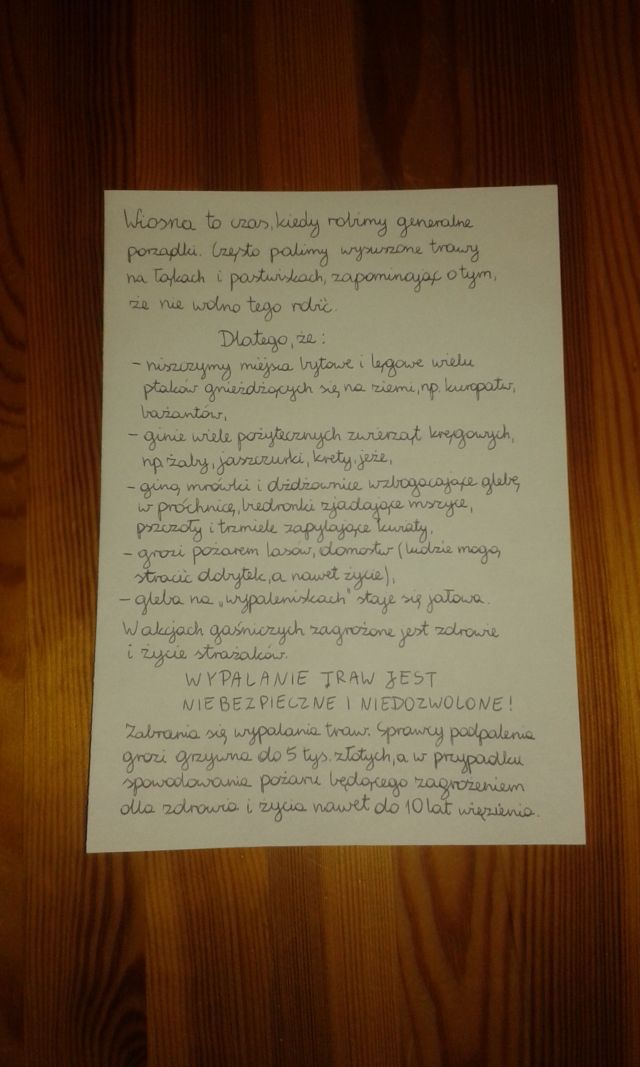 Wiosna to czas, kiedy robimy generalne
porządki. Często palimy wysuszone trawy
na łąkach i pastwiskach, zapominając o tym,
że nie wolno tego robić.
Dlatego, że:
- niszczymy miejsca bytowe i lęgowe wielu
ptaków gnieżdżących się na ziemi, np. kuropatw,
bażantów,
- ginie wiele pożytecznych zwierząt kręgowych,
np. żaby, jaszczurki, krety, jeże,
- giną mrówki i dżdżownice wzbogacające glebę
w próchnicę, biedronki zjadające mszyce,
pszczoły i trzmiele zapylające kwiaty,
- grozi pożarem lasów, domostw (ludzie mogą
stracić dobytek, a nawet życie),
- gleba na „wypaleniskach" staje się jałowa.
W akcjach gaśniczych zagrożone jest zdrowie
i życie strażaków.
WYPALANIE TRAW JEST
NIEBEZPIECZNE I NIEDOZWOLONE!
Zabrania się wypalania traw. Sprawcy podpalenia
grozi grzywna do 5 tys. złotych, a w przypadku
spowodowania pożaru będącego zagrożeniem
dla zdrowia i życia nawet do 10 lat więzienia.